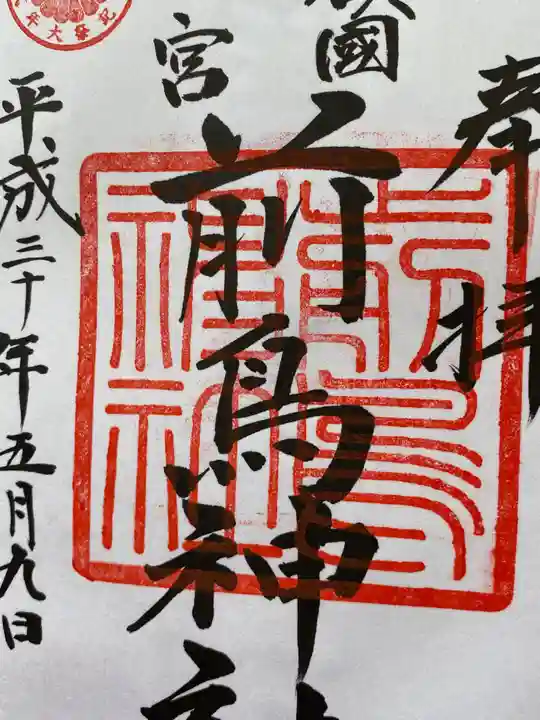 奉拝
國
宮
前鳥神社
平成三十年五月九日